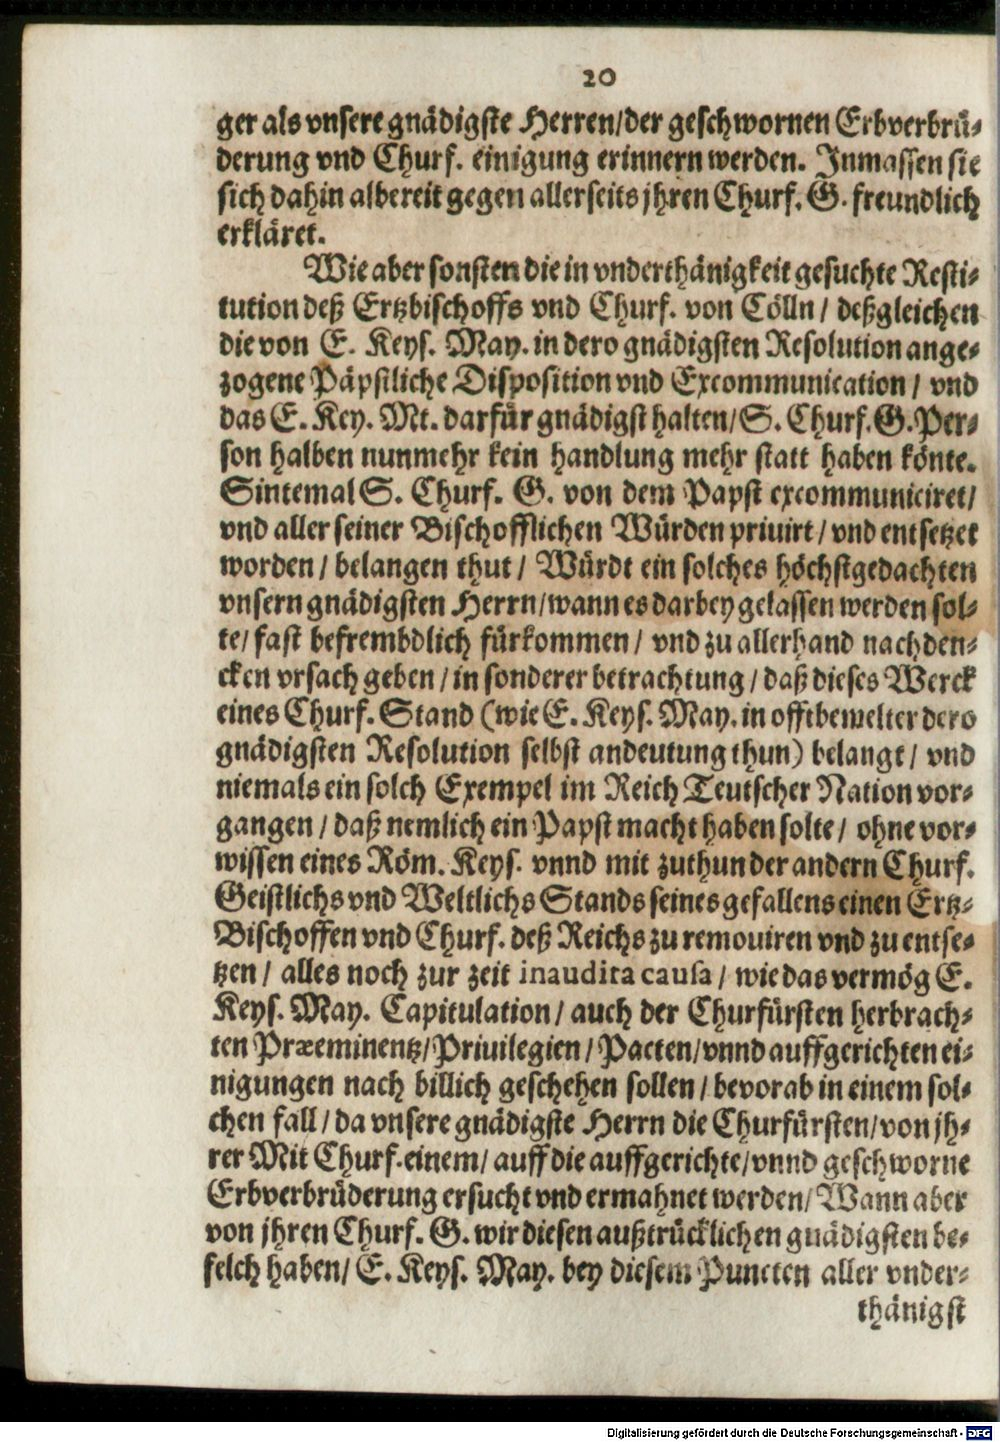 20
ger als vnsere gnädigste Herren/der geschwornen Erbverbrü-
derung vnd Churf. einigung erinnern werden. Inmassen sie
sich dahin albereit gegen allerseits jhren Churf. G. freundlich
erkläret.
Wie aber sonsten die in vnderthänigkeit gesuchte Resti-
tution deß Ertzbischoffs vnd Churf. von Cölln / deßgleichen
die von E. Keys. May. in dero gnädigsten Resolution ange-
zogene Päpstliche Disposition vnd Excommunication / vnd
das E. Key. Mt. darfür gnädigst halten/S. Churf.G.Per-
son halben nunmehr kein handlung mehr statt haben könte.
Sintemal S. Churf. G. von dem Papst excommuniciret/
vnd aller seiner Bischofflichen Würden priuirt / vnd entsetzet
worden / belangen thut / Würdt ein solches höchstgedachten
vnsern gnädigsten Herrn/wann es darbey gelassen werden sol-
te/ fast befrembdlich fürkommen / vnd zu allerhand nachden-
cken vrsach geben / in sonderer betrachtung / daß dieses Werck
eines Churf. Stand (wie E. Keys. May. in offtbemelter dero
gnädigsten Resolution selbst andeutung thun) belangt / vnd
niemals ein solch Exempel im Reich Teutscher Nation vor-
gangen / daß nemlich ein Papst macht haben solte / ohne vor-
wissen eines Röm. Keys. vnnd mit zuthun der andern Churf.
Geistlichs vnd Weltlichs Stands seines gefallens einen Ertz-
Bischoffen vnd Churf. deß Reichs zu remouiren vnd zu entse-
tzen / alles noch zur zeit inaudita causa / wie das vermög E.
Keys. May. Capitulation / auch der Churfürsten herbrach-
ten Præeminentz/Priuilegien / Pacten/vnnd auffgerichten ei-
nigungen nach billich geschehen sollen / bevorab in einem sol-
chen fall / da vnsere gnädigste Herrn die Churfürsten/von jh-
rer Mit Churf.einem/ auff die auffgerichte/vnnd geschworne
Erbverbrüderung ersucht vnd ermahnet werden/ Wann aber
von jhren Churf. G. wir diesen außtrücklichen gnädigsten be-
felch haben/ E. Keys. May. bey diesem Puncten aller vnder-
thänigst
Digitalisierung gefördert durch die Deutsche Forschungsgemeinschaft - DFG